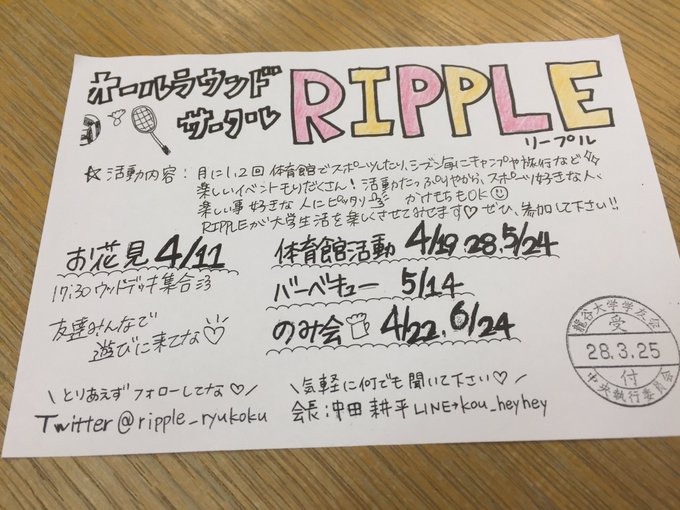 オールラウンド
サークル
RIPPLE
リープル
☆活動内容：月に1,2回体育館でスポーツしたり、シーズン毎にキャンプや旅行など
楽しいイベントもりだくさん！活動たっぷりやから、スポーツ好きな人、
楽しい事好きな人にピッタリ かけもちもOK
RIPPLEが大学生活を楽しくさせてみせます♡ぜひ、参加して下さい!!
お花見 4/11
17:30ウッドデッキ集合
友達みんなで
遊びに来てな♡
体育館活動 4/19.28.5/24
バーベキュー 5/14
のみ会 4/22.6/24
龍谷大学学友会
受
28.3.25
付
中央執行委員会
\とりあえずフォローしてな♡/
Twitter@ripple_ryukoku
\気軽に何でも聞いて下さい♡/
会長:中田 耕平 LINE→kou_heyhey